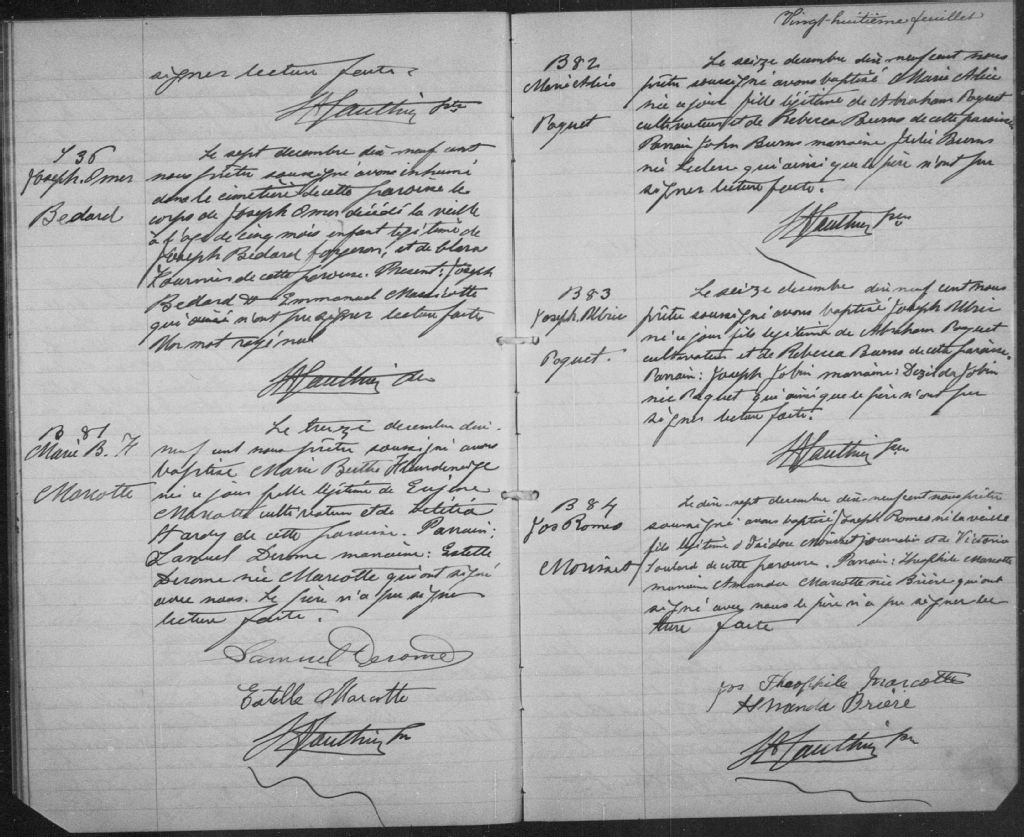 signer lecture faite.
Gauthier ptre
S 36
Joseph-Omer
Bedard
Le sept decembre dix-neuf cent
nous prêtre soussigné avons inhumé
dans le cimetière de cette paroisse le
corps de Joseph Omer décédé la veille
à l'age de cinq mois enfant legitime de
Joseph Bédard forgeron, et de
de cette paroisse. Present: Joseph
Bedard & Emmanuel Marcotte
qui n'ont pu signer lecture faite
Un mot rayé nul
Gauthier
B 81
Marie B. H
Marcotte
Le treize decembre dix-
neuf cent nous prêtre soussigné avons
baptisé Marie Berthe
née ce jour fille légitime de Eugène
Marcotte cultivateur et de Létitia
Hardy de cette paroisse. Parrain:
Samuel Derome marraine: Estelle
Derome née Marcotte qui ont signé
avec nous. Le père n'a pu signer
lecture faite.
Samuel Derome
Estelle Marcotte
Gauthier ptr
Vingt-huitième feuillet
B 82
Marie Alice
Paquet
Le seize decembre dix-neuf cent nous
prêtre soussigné avons baptisé Marie Alice
née ce jour fille légitime de Abraham Paquet
cultivateur et de Rebecca Burns de cette paroisse
Parrain John Burns marraine Julie Burns
née Leclerc qui ainsi que le père n'ont pu
signer lecture faite.
Gauthier ptr
B 83
Joseph Ulric
Paquet.
Le seize decembre dix neuf cent nous
prêtre soussigné avons baptisé Joseph Ulric
né ce jour fils legitime de Abraham Paquet
cultivateur et de Rebecca Burns de cette paroisse.
Parrain: Joseph Jobin marraine: Dezilda Jobin
née Paquet qui ainsi que le père n'ont pu
signer lecture faite.
Gauthier ptr
B 84
Jos Romeo
Le dix-sept decembre dix-neuf cent nous prêtre
soussigné avons baptisé Joseph Romeo né la veille
fils legitime d'Isidore journalier et de Victoria
Soulard de cette paroisse. Parrain: Theophile Marcotte
marraine Amanda Marcotte née Brière qui ont
signé avec nous le père n'a pu signer lec
ture faite
Jos Theophile Marcotte
Amanda Brière
Gauthier ptr